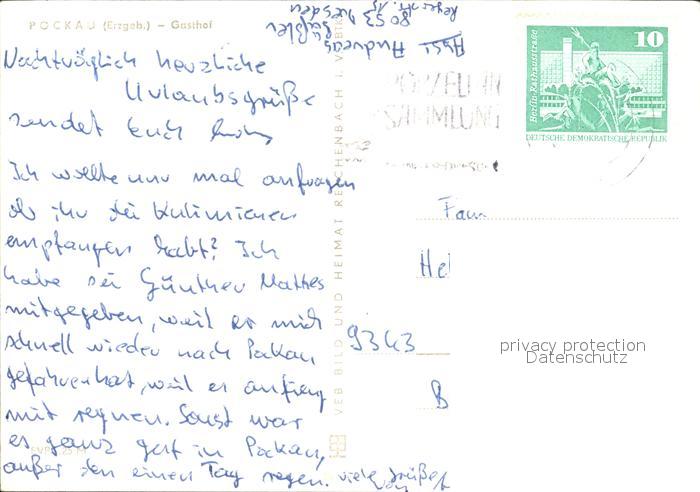 POCKAU (Erzgeb.) – Gasthof
Nachträglich herzliche
Urlaubsgrüße
sendet Euch
Ich wollte nur mal anfragen
ob ihr die
empfangen habt? Ich
habe sie Günther Mattes
mitgegeben, weil er mich
schnell wieder nach Pockau
gefahren hat, weil er anfing
mit regnen. Sonst war
es ganz gut in Pockau,
außer den einen Tag regen. viele Grüße
VEB BILD UND HEIMAT REICHENBACH I. V.
Andreas
8053 Dresden
SAMMLUNG
Berlin-Rathausstraße
10
DEUTSCHE DEMOKRATISCHE REPUBLIK
Fam
Hel
9343
B
privacy protection
Datenschutz